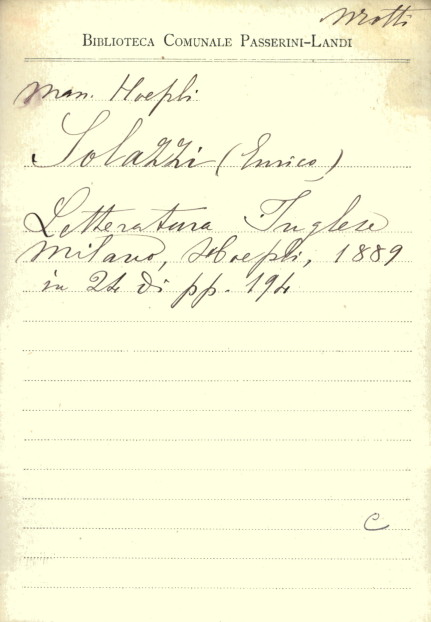 BIBLIOTECA COMUNALE PASSERINI-LANDI
Man. Hoepli
Solazzi (Enrico)
Letteratura Inglese
Milano, Hoepli, 1889
in 24 di pp. 194
C